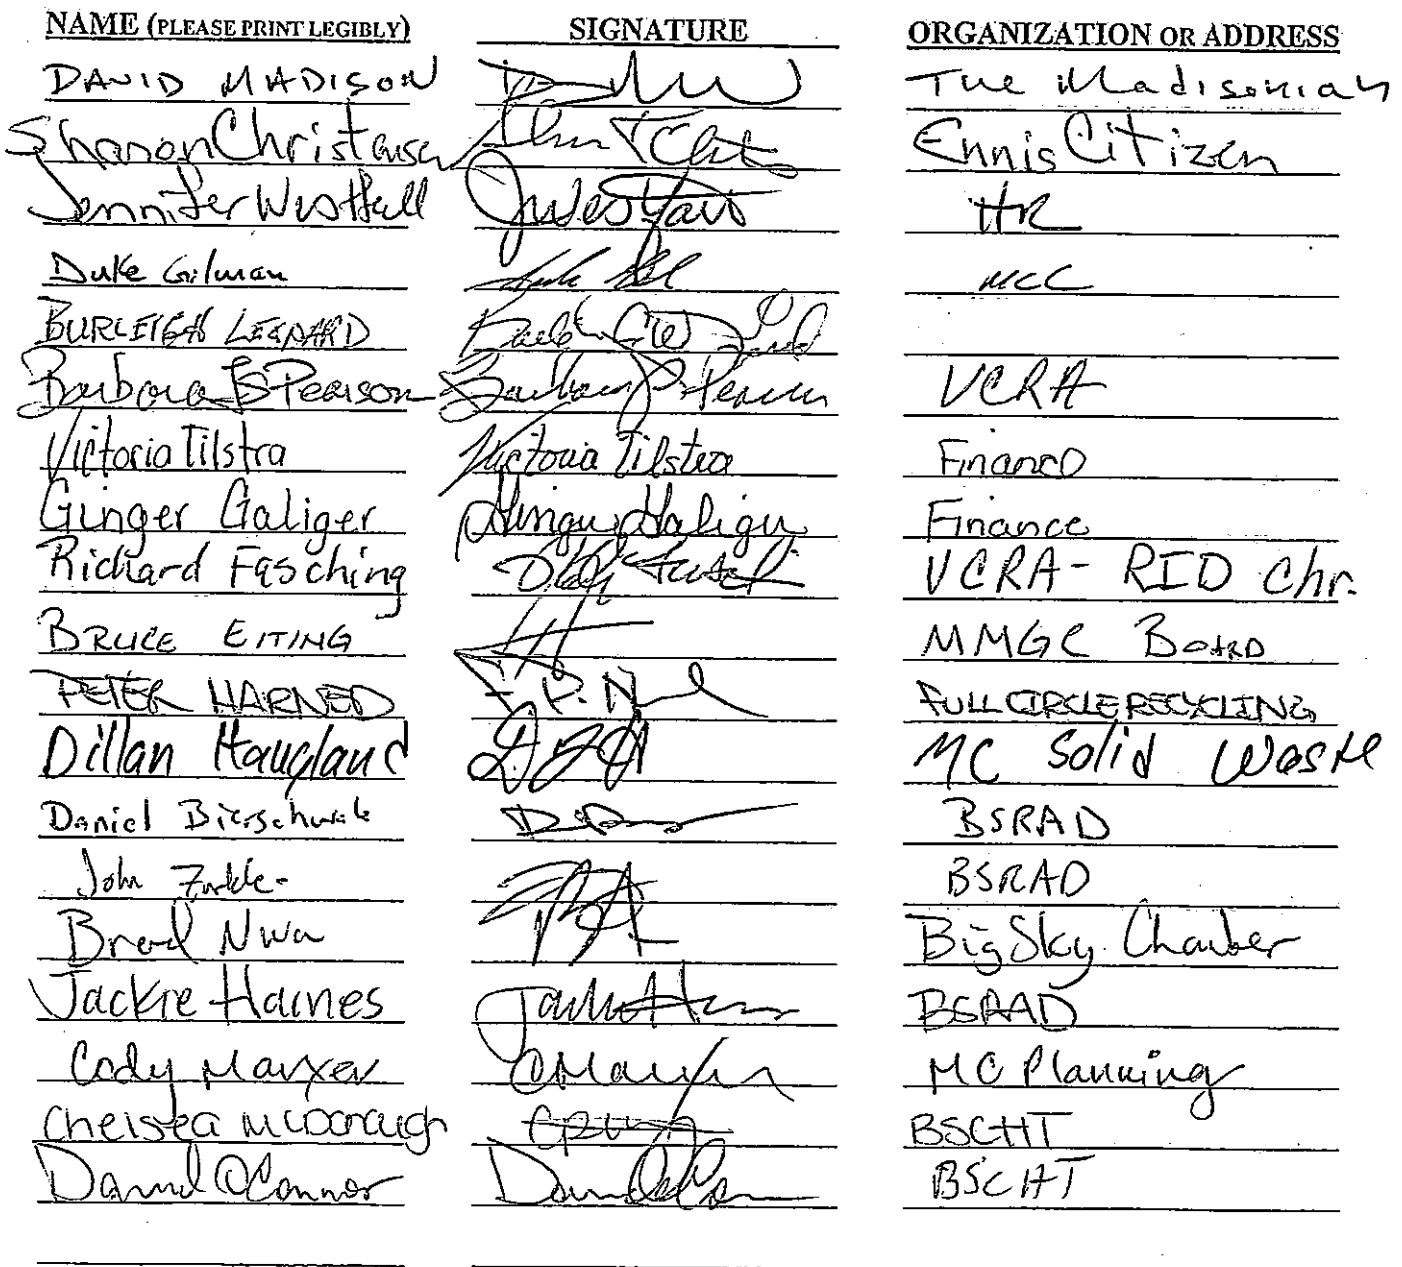 NAME (PLEASE PRINT LEGIBLY) SIGNATURE ORGANIZATION OR ADDRESS
DAVID MADISON The Madisonian
Sharon Christensen Ennis Citizen
Jennifer Westfall JWestfall HR
Duke Gilman MCC
BURLEIGH LEONARD
Barbara B Pearson Barbara Pearson VCRA
Victoria Tilstra Victoria Tilstra Finance
Ginger Galiger Ginger Galiger Finance
Richard Fasching VCRA - RID Chr.
BRUCE EITING MMGC BOARD
PETER HARNED FULL CIRCLE RECYCLING
Dillan Haugland MC Solid Waste
Daniel Bierschwale BSRAD
John BSRAD
Brad Big Sky Chamber
Jackie Haines BSRAD
Cody Marxer CMarxer MC Planning
Chelsea McDonough BSCHT
Daniel O'Connor BSCHT